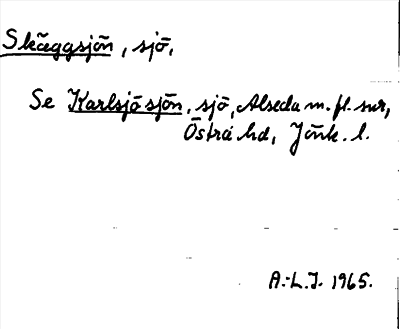 Skäggsjön, sjö,
Se Karlsjösjön, sjö, Alseda m. fl. snr,
Östra hd, Jönk. l.
A.-L.J. 1965.